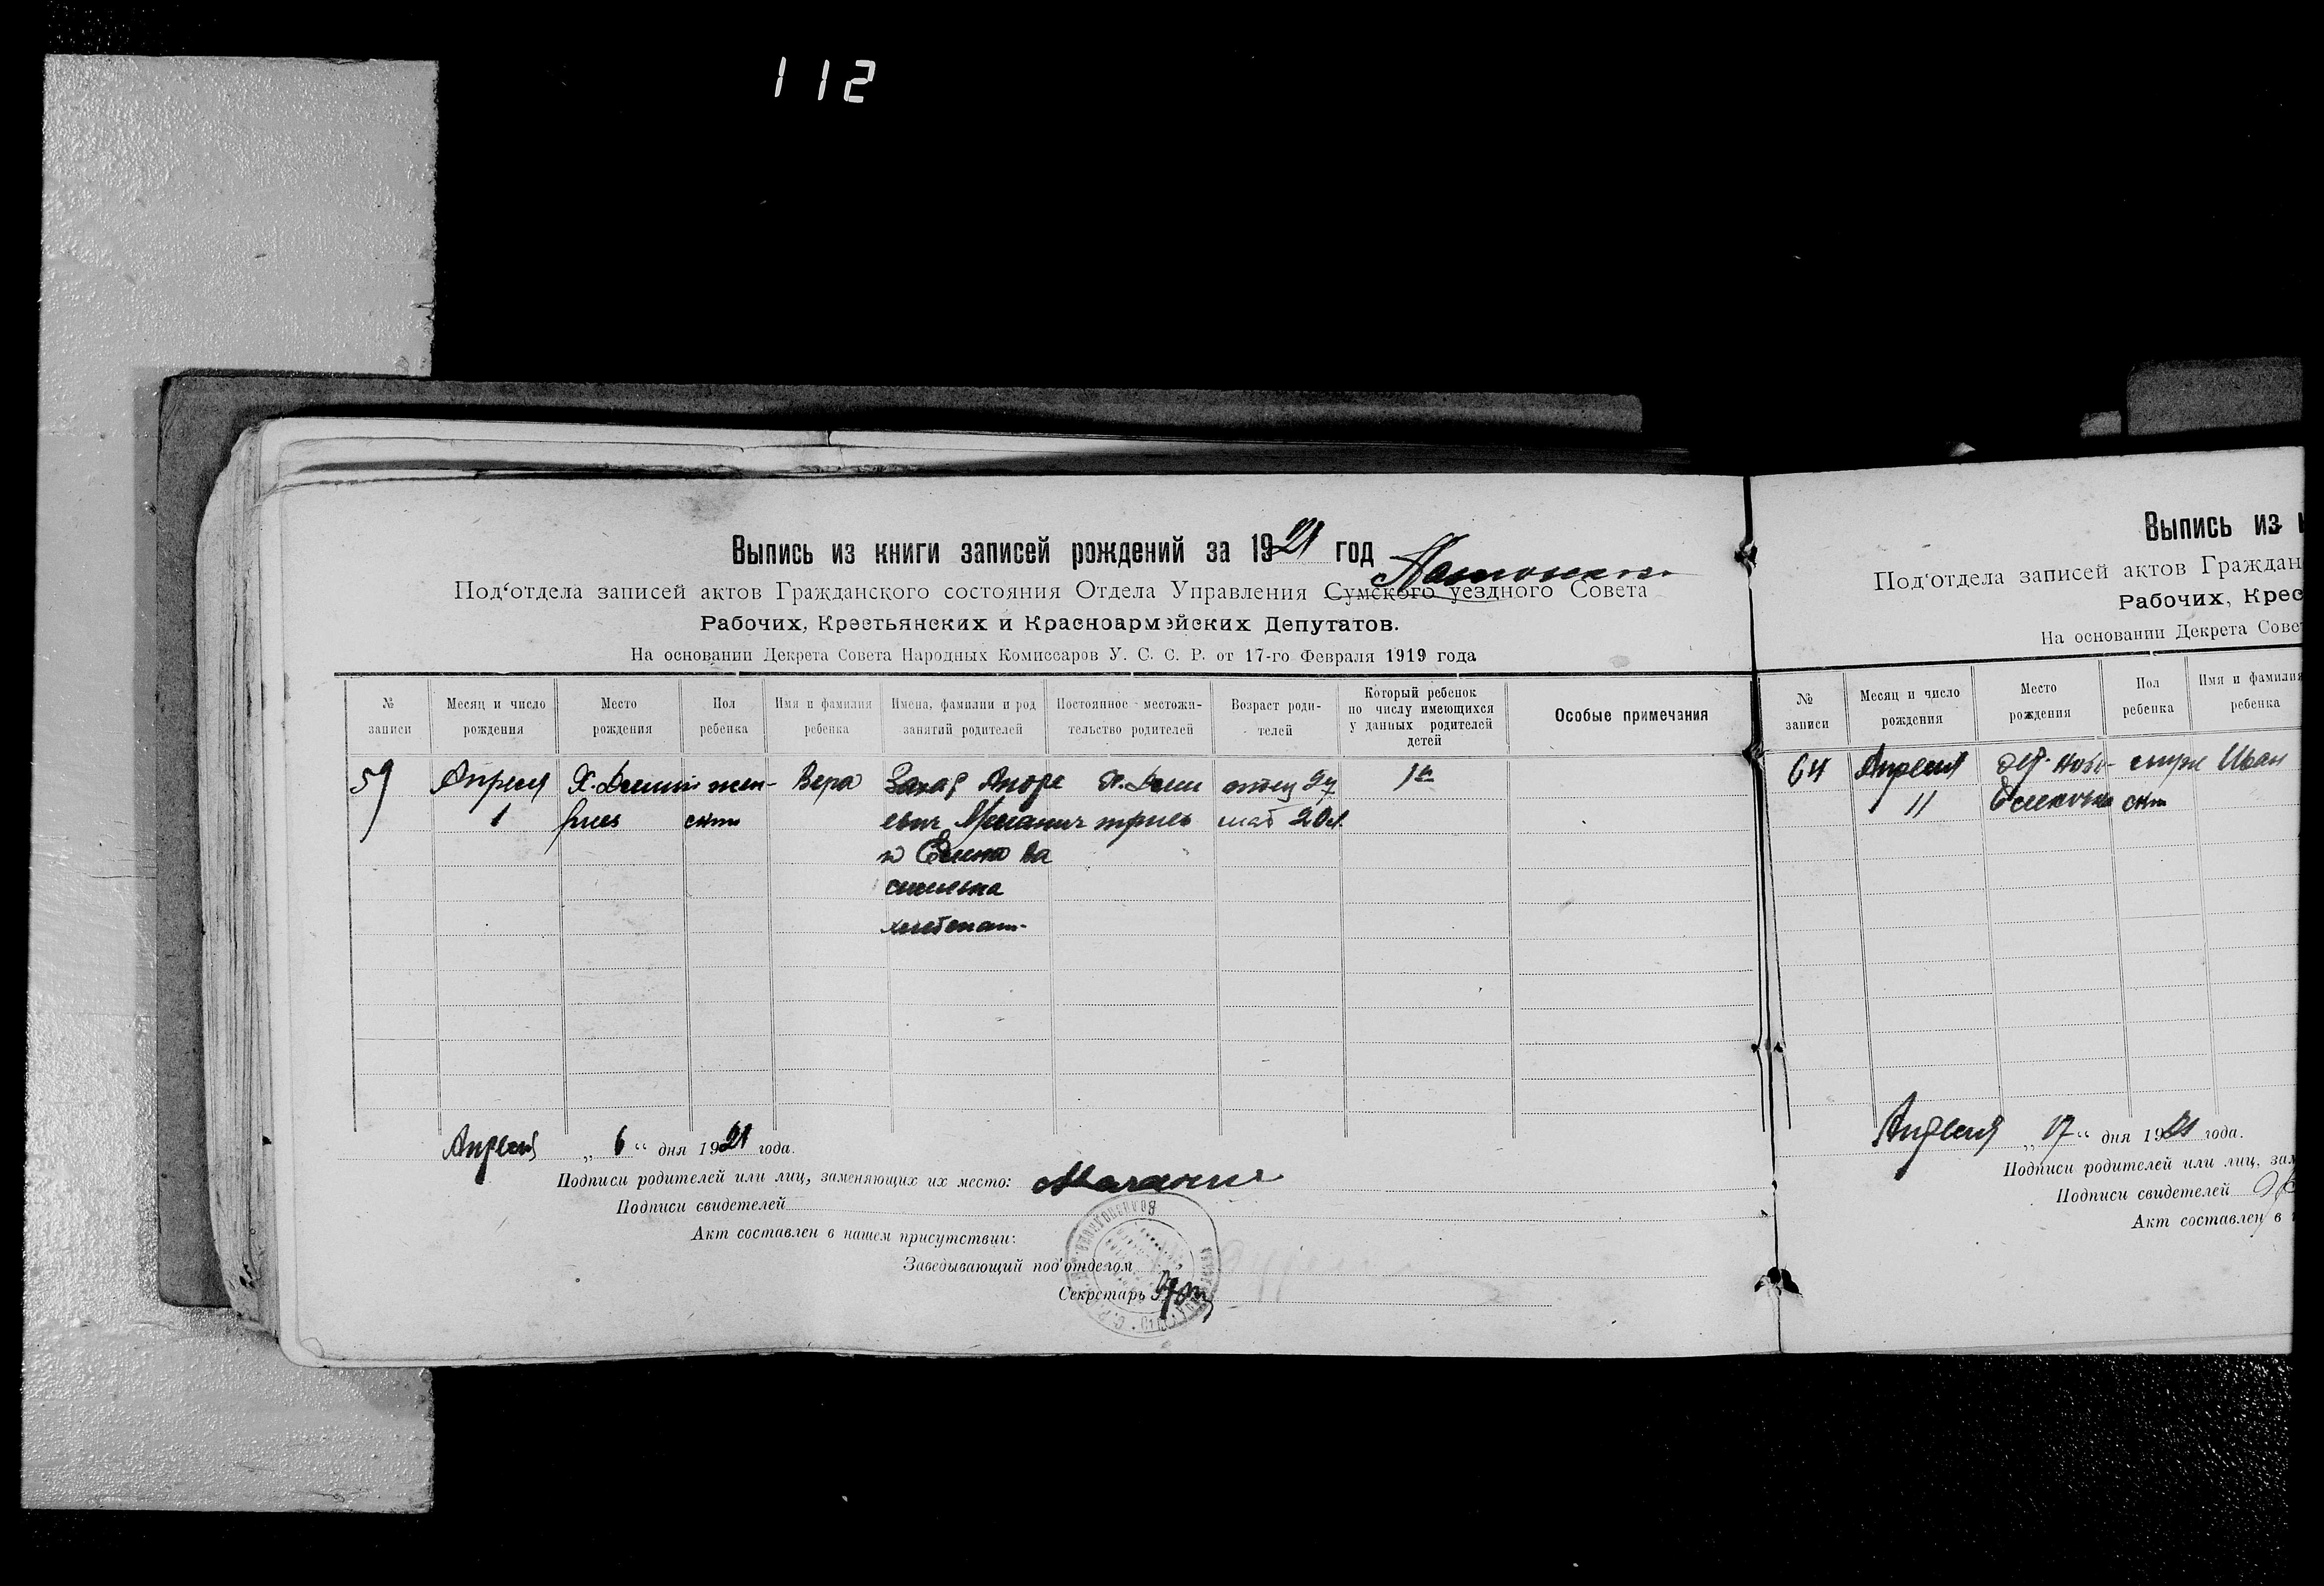 112
Выпись из книги записей рождений за 1921 год
Под‘отдела записей актов Гражданского состояния Отдела Управления Сумского уездного Совета
Рабочих, Крестьянских и Красноармейских Депутатов.
На основании Декрета Совета Народных Комиссаров У. С. С. Р. от 17-го Февраля 1919 года
№ записи
Месяц и число рождения
Место рождения
Пол ребенка
Имя и фамилия ребенка
Имена, фамилии и род занятий родителей
Постоянное местожительство родителей
Возраст родителей
Который ребенок по числу имеющихся у данных родителей детей
Особые примечания
59 Апреля Х. Дмит жен- Вера Захар Андре Х. Дми отец 27 1й
1 риев ския евич триев мат 20 л.
и Елена Ва
сильевна
хлебопаш-
Апреля „ 6 “ дня 1921 года.
Подписи родителей или лиц, заменяющих их место:
Подписи свидетелей
Акт составлен в нашем присутствии:
Заведывающий под‘отделом
Секретарь
Выпись из
Под‘отдела записей актов Граждан
Рабочих, Крес
На основании Декрета Сове
№ записи
Месяц и число рождения
Место рождения
Пол ребенка
Имя и фамилия ребенка
64 Апреля Иван
11
Апреля „ 17 “ дня 1921 года.
Подписи родителей или лиц, зам
Подписи свидетелей
Акт составлен в